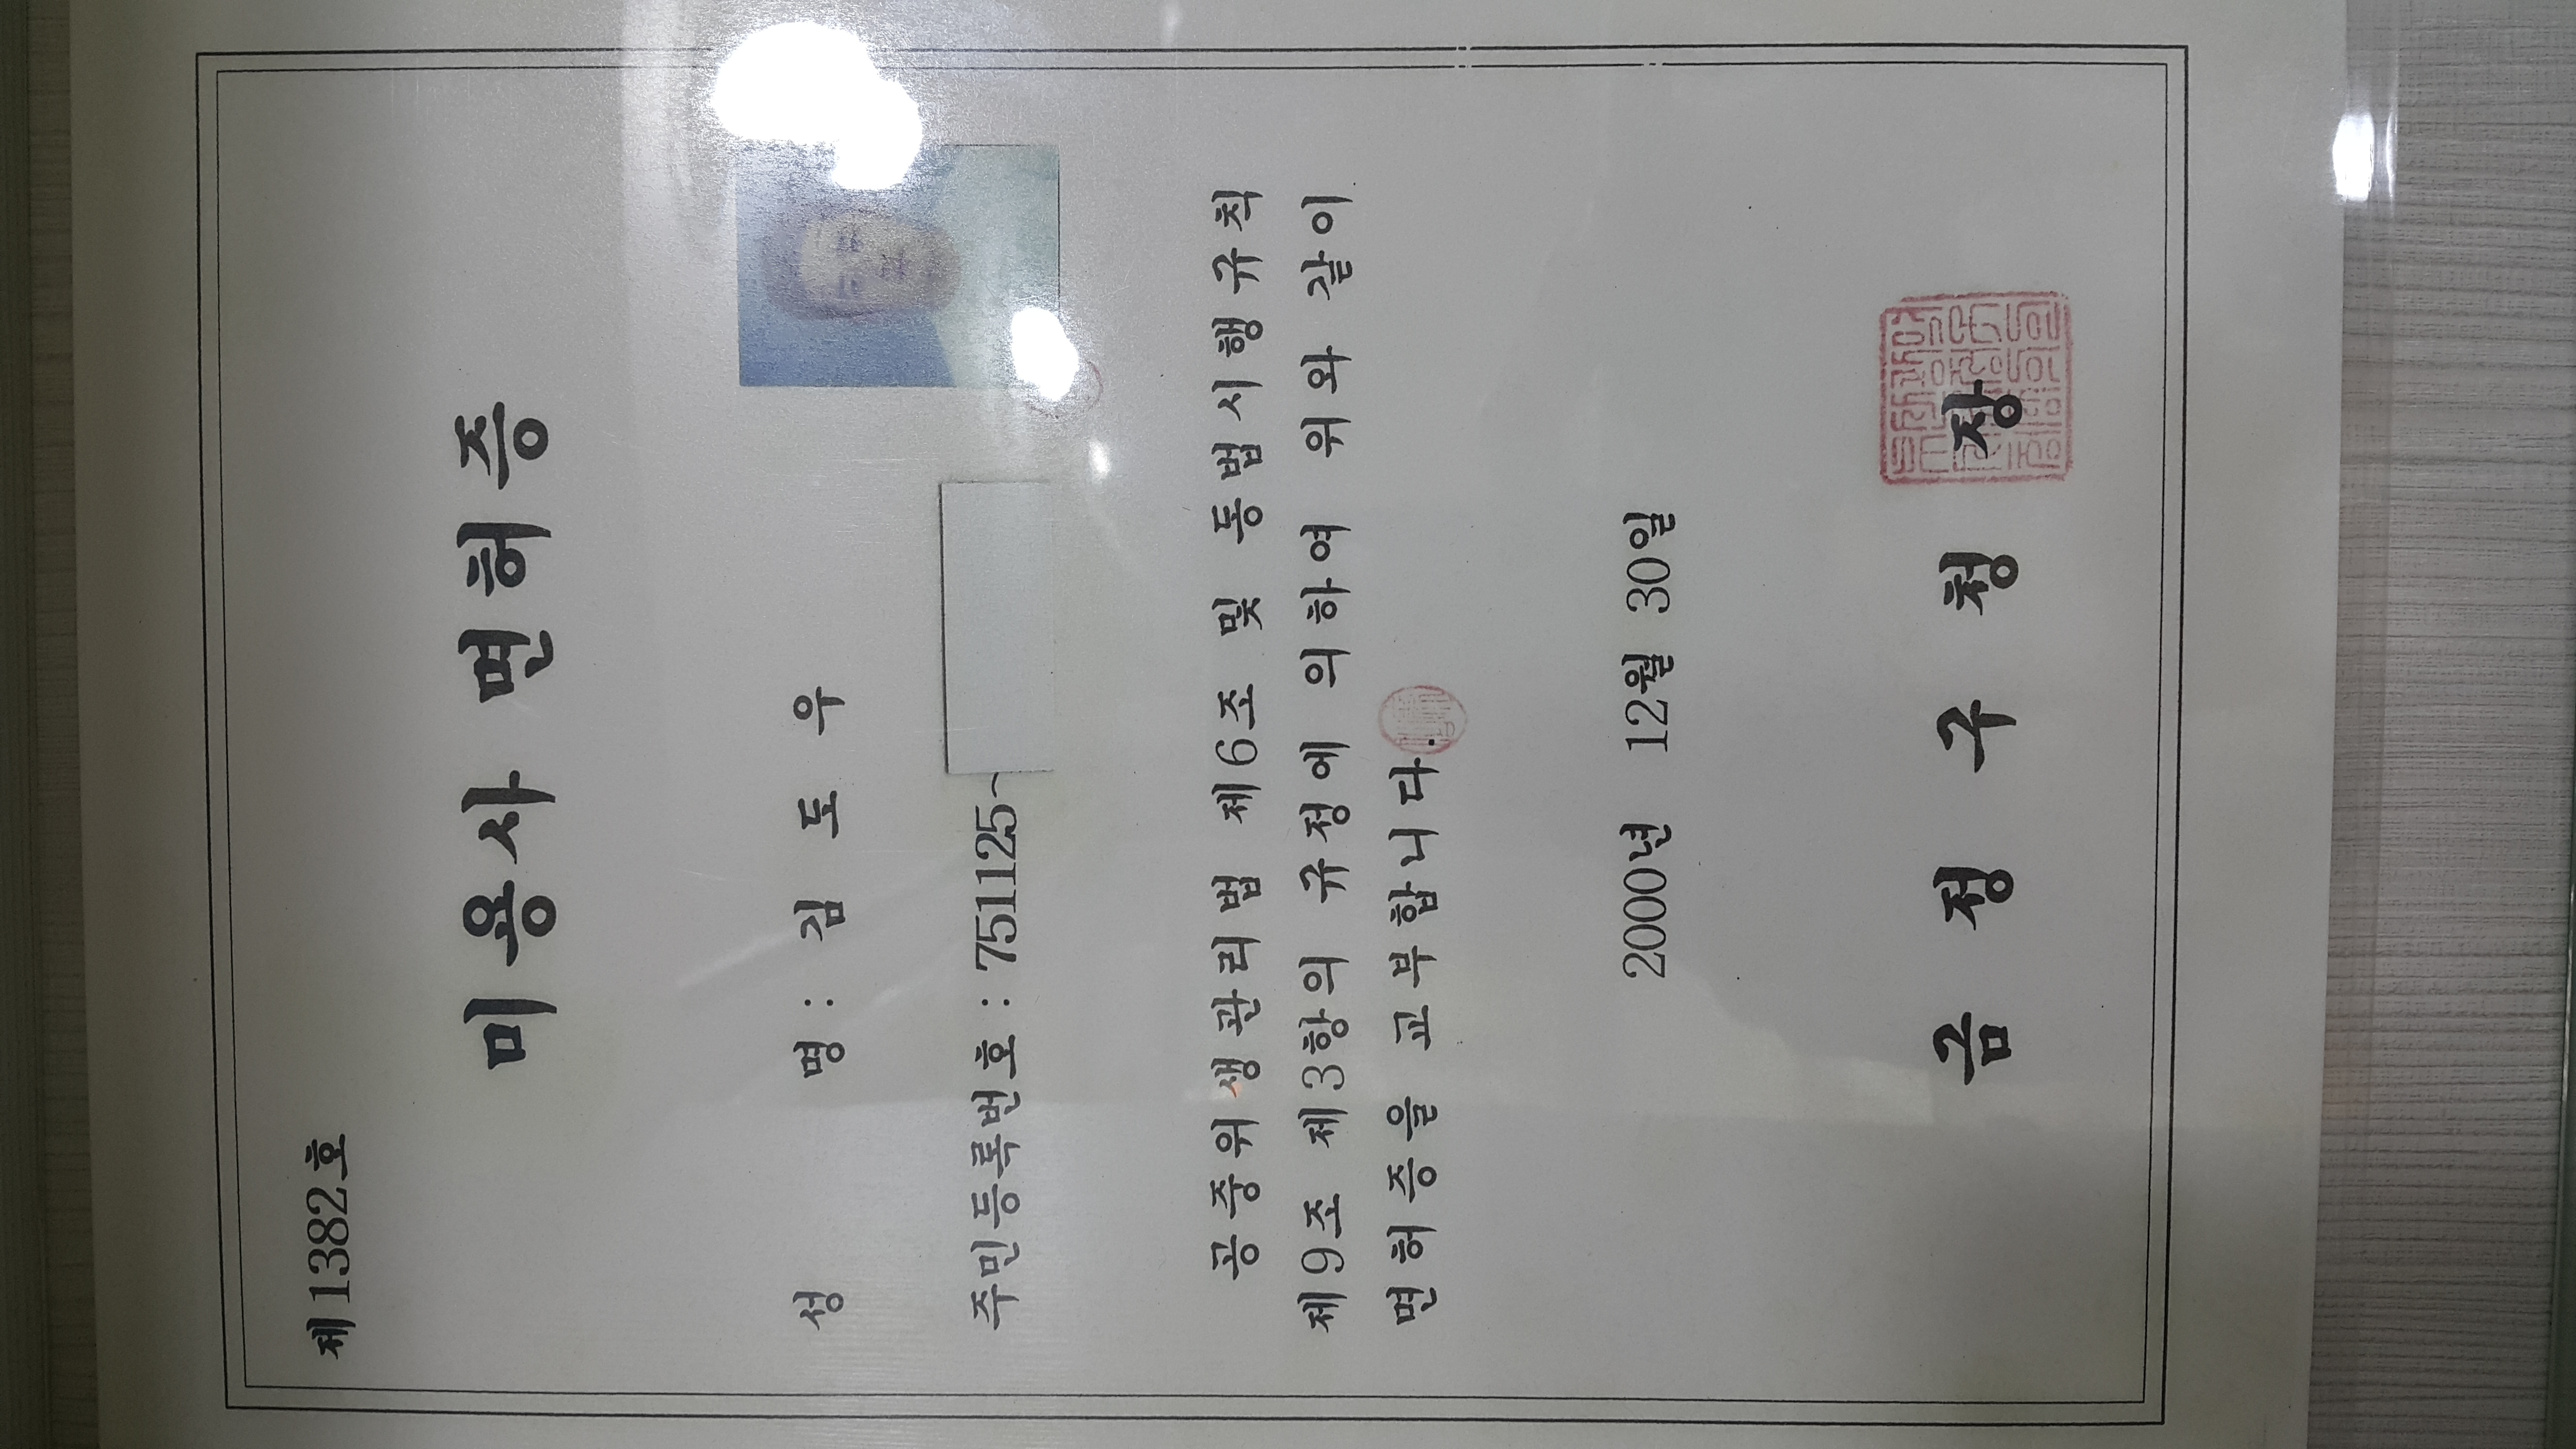 제1382호
미용사 면허증
성 명 : 김 도 우
주민등록번호 : 751125-
공중위생관리법 제6조 및 동법시행규칙
제9조 제3항의 규정에 의하여 위와 같이
면허증을 교부합니다.
2000년 12월 30일
금 정 구 청 장